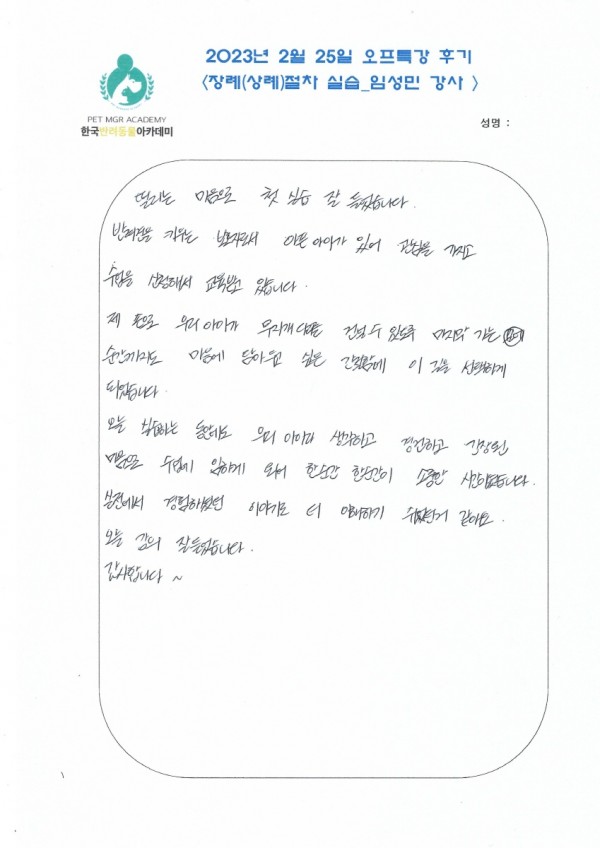 2023년 2월 25일 오프특강 후기
<장례(상례)절차 실습_임성민 강사 >
PET MGR ACADEMY
한국반려동물아카데미
성명 :
떨리는 마음으로 첫 실습 잘 들었습니다.
반려견을 키우는 보호자로서 아픈 아이가 있어 관심을 가지고
수업을 신청해서 교육받고 있습니다.
제 품으로 우리 아이가 무지개다리를 건널 수 있도록 마지막 가는
순간까지도 마음에 담아두고 싶은 간절함에 이 길을 선택하게
되었습니다.
오늘 실습하는 동안에도 우리 아이라 생각하고 경건하고 긴장된
마음으로 수업에 임하게 되어 한순간 한순간이 소중한 시간이었습니다.
실전에서 경험하셨던 이야기로 더 이해하기 쉬웠던거 같아요.
오늘 강의 잘 들었습니다.
감사합니다 ~